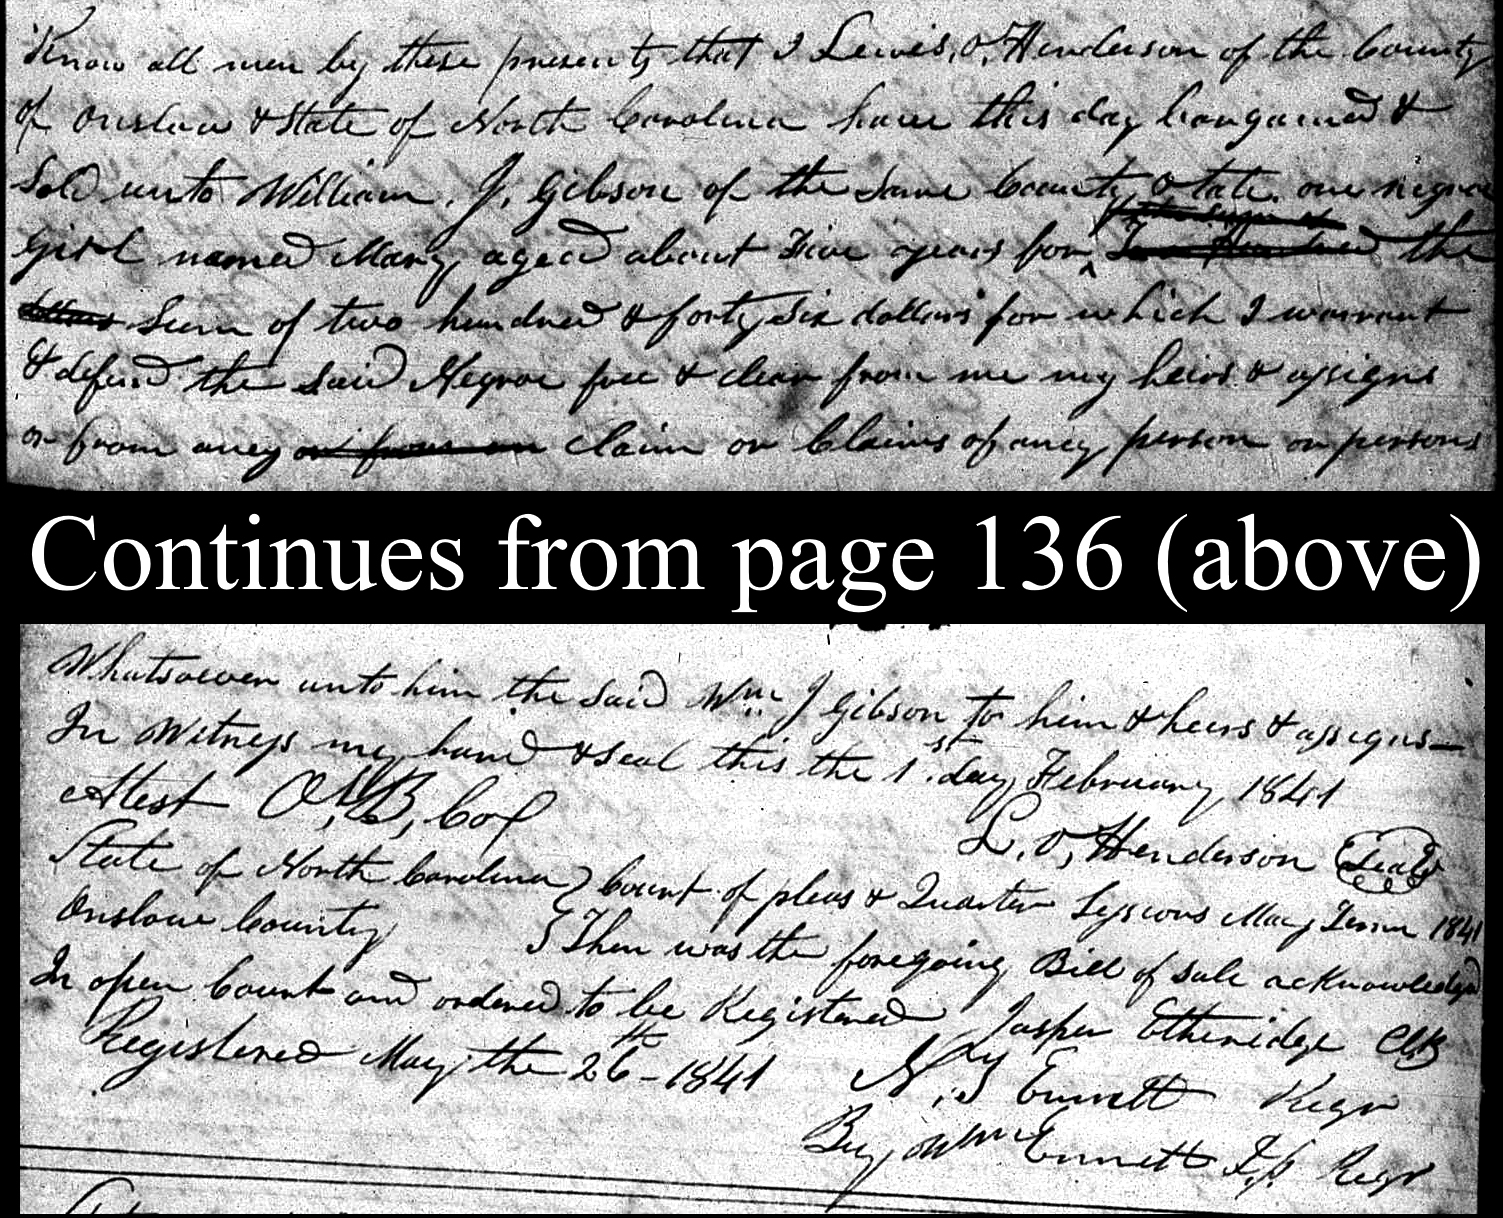 Know all men by these presents that I Lewis, O, Henderson of the County
of Onslow & State of North Carolina have this day bargained &
Sold unto William. J, Gibson of the Same County & State. one negroe
Girl named Mary, aged about Five years for the
Sum of two hundred & forty Six dollars for which I warrant
& defend the said Negroe free & clear from me my heirs & assigns
or from aney claim or Claims of aney person or persons
Continues from page 136 (above)
Whatsoever unto him the Said Wm J Gibson to him & heirs & assigns
In Witness my hand & seal this the 1st day February 1841
Attest
L. O, Henderson Seal
State of North Carolina } Court of pleas & Quarter Sessions May Term 1841
Onslow County } Then was the foregoing Bill of sale acknowledged
In open Court and ordered to be Registered Jasper Etheridge Clk
Registered May the 26th - 1841
Emmett Regr
By Wm Emmett Regr